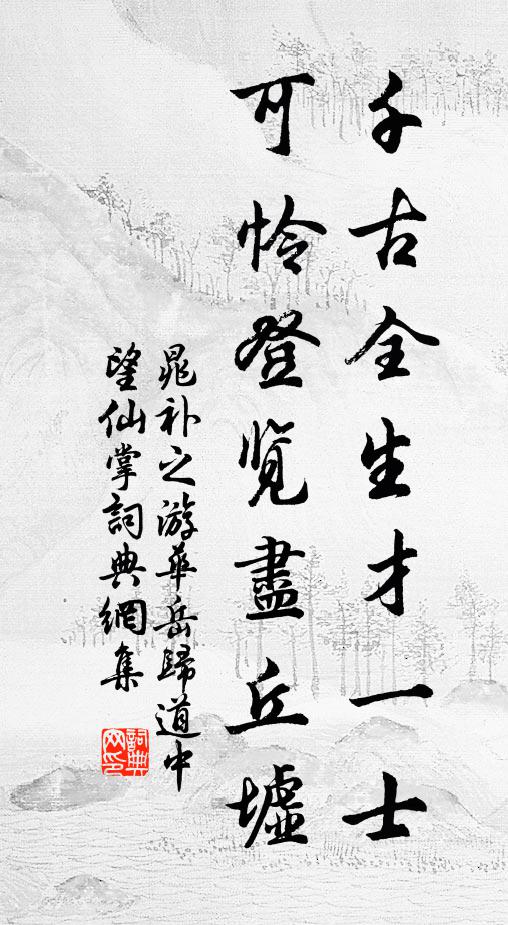 千古全生才一士
可怜登览盡丘墟
晁补之游華岳歸道中
望仙掌詞典網集
詞典网印